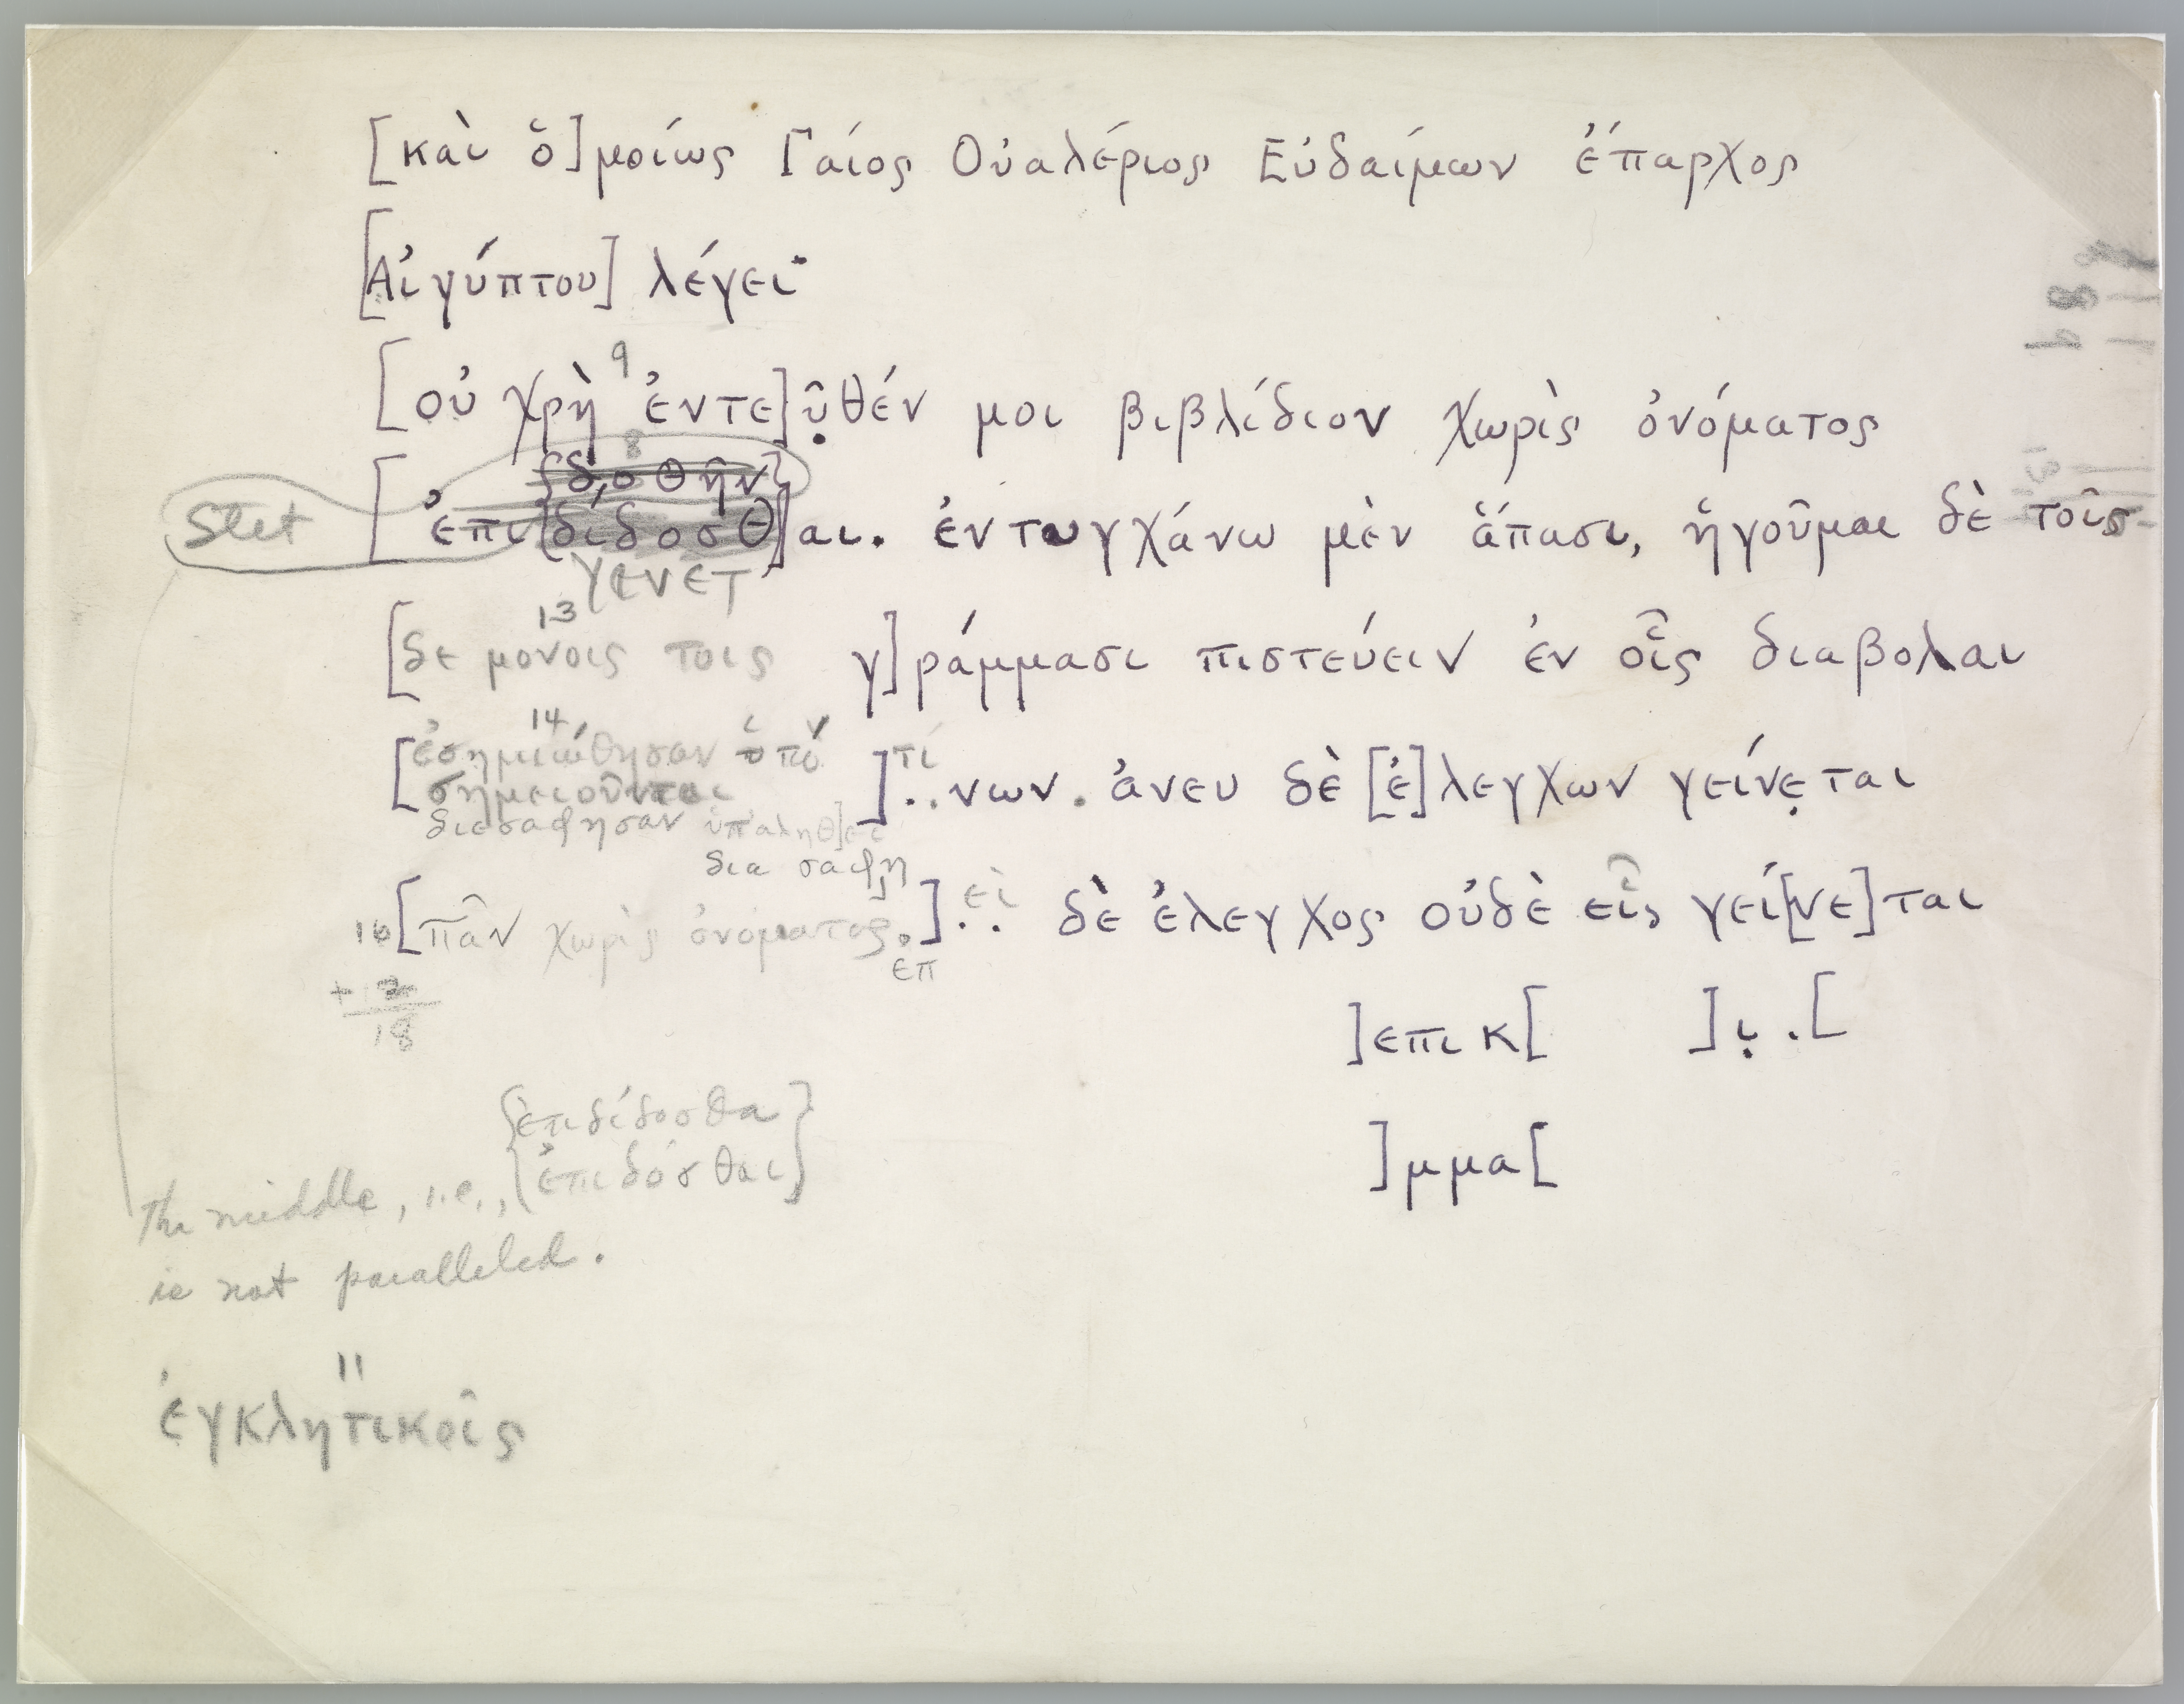 [καὶ ὁ]μοίως Γαίος Οὐαλέριος Εὐδαίμων ἔπαρχος
[Αἰγύπτου] λέγει·
9
[οὐ χρὴ ἐντε]ῦ̣θέν μοι βιβλίδιον χωρὶς ὀνόματος
8
{δοθῆν}
Stet [ἐπι[διδοσθ]αι. ἐντυγχάνω μὲν ἅπασι, ἡγοῦμαι δὲ τοῖς
γενετ
13
[δε μόνοις τοις γ]ράμμασι πιστεύειν ἐν οἷς διαβολαι
14
[ἐσημειώθησαν ὑπό ]..νων. ἄνευ δὲ [ἐ]λεγχων γείνε̣ται
τί
σημειοῦνται
διεσαφησαν
δια σαφη
16 [πᾶν χωρὶς ὀνόματος.].. δὲ ἔλεγχος οὐδὲ εἷς γεί[νε]ται
εἰ
επ
18
]επικ[ ]ι̣.[
{ἐπιδίδοσθα}
]μμα[
The middle, i.e., {ἐπιδόσθαι}
is not paralleled.
11
ἐγκλητικοῖς